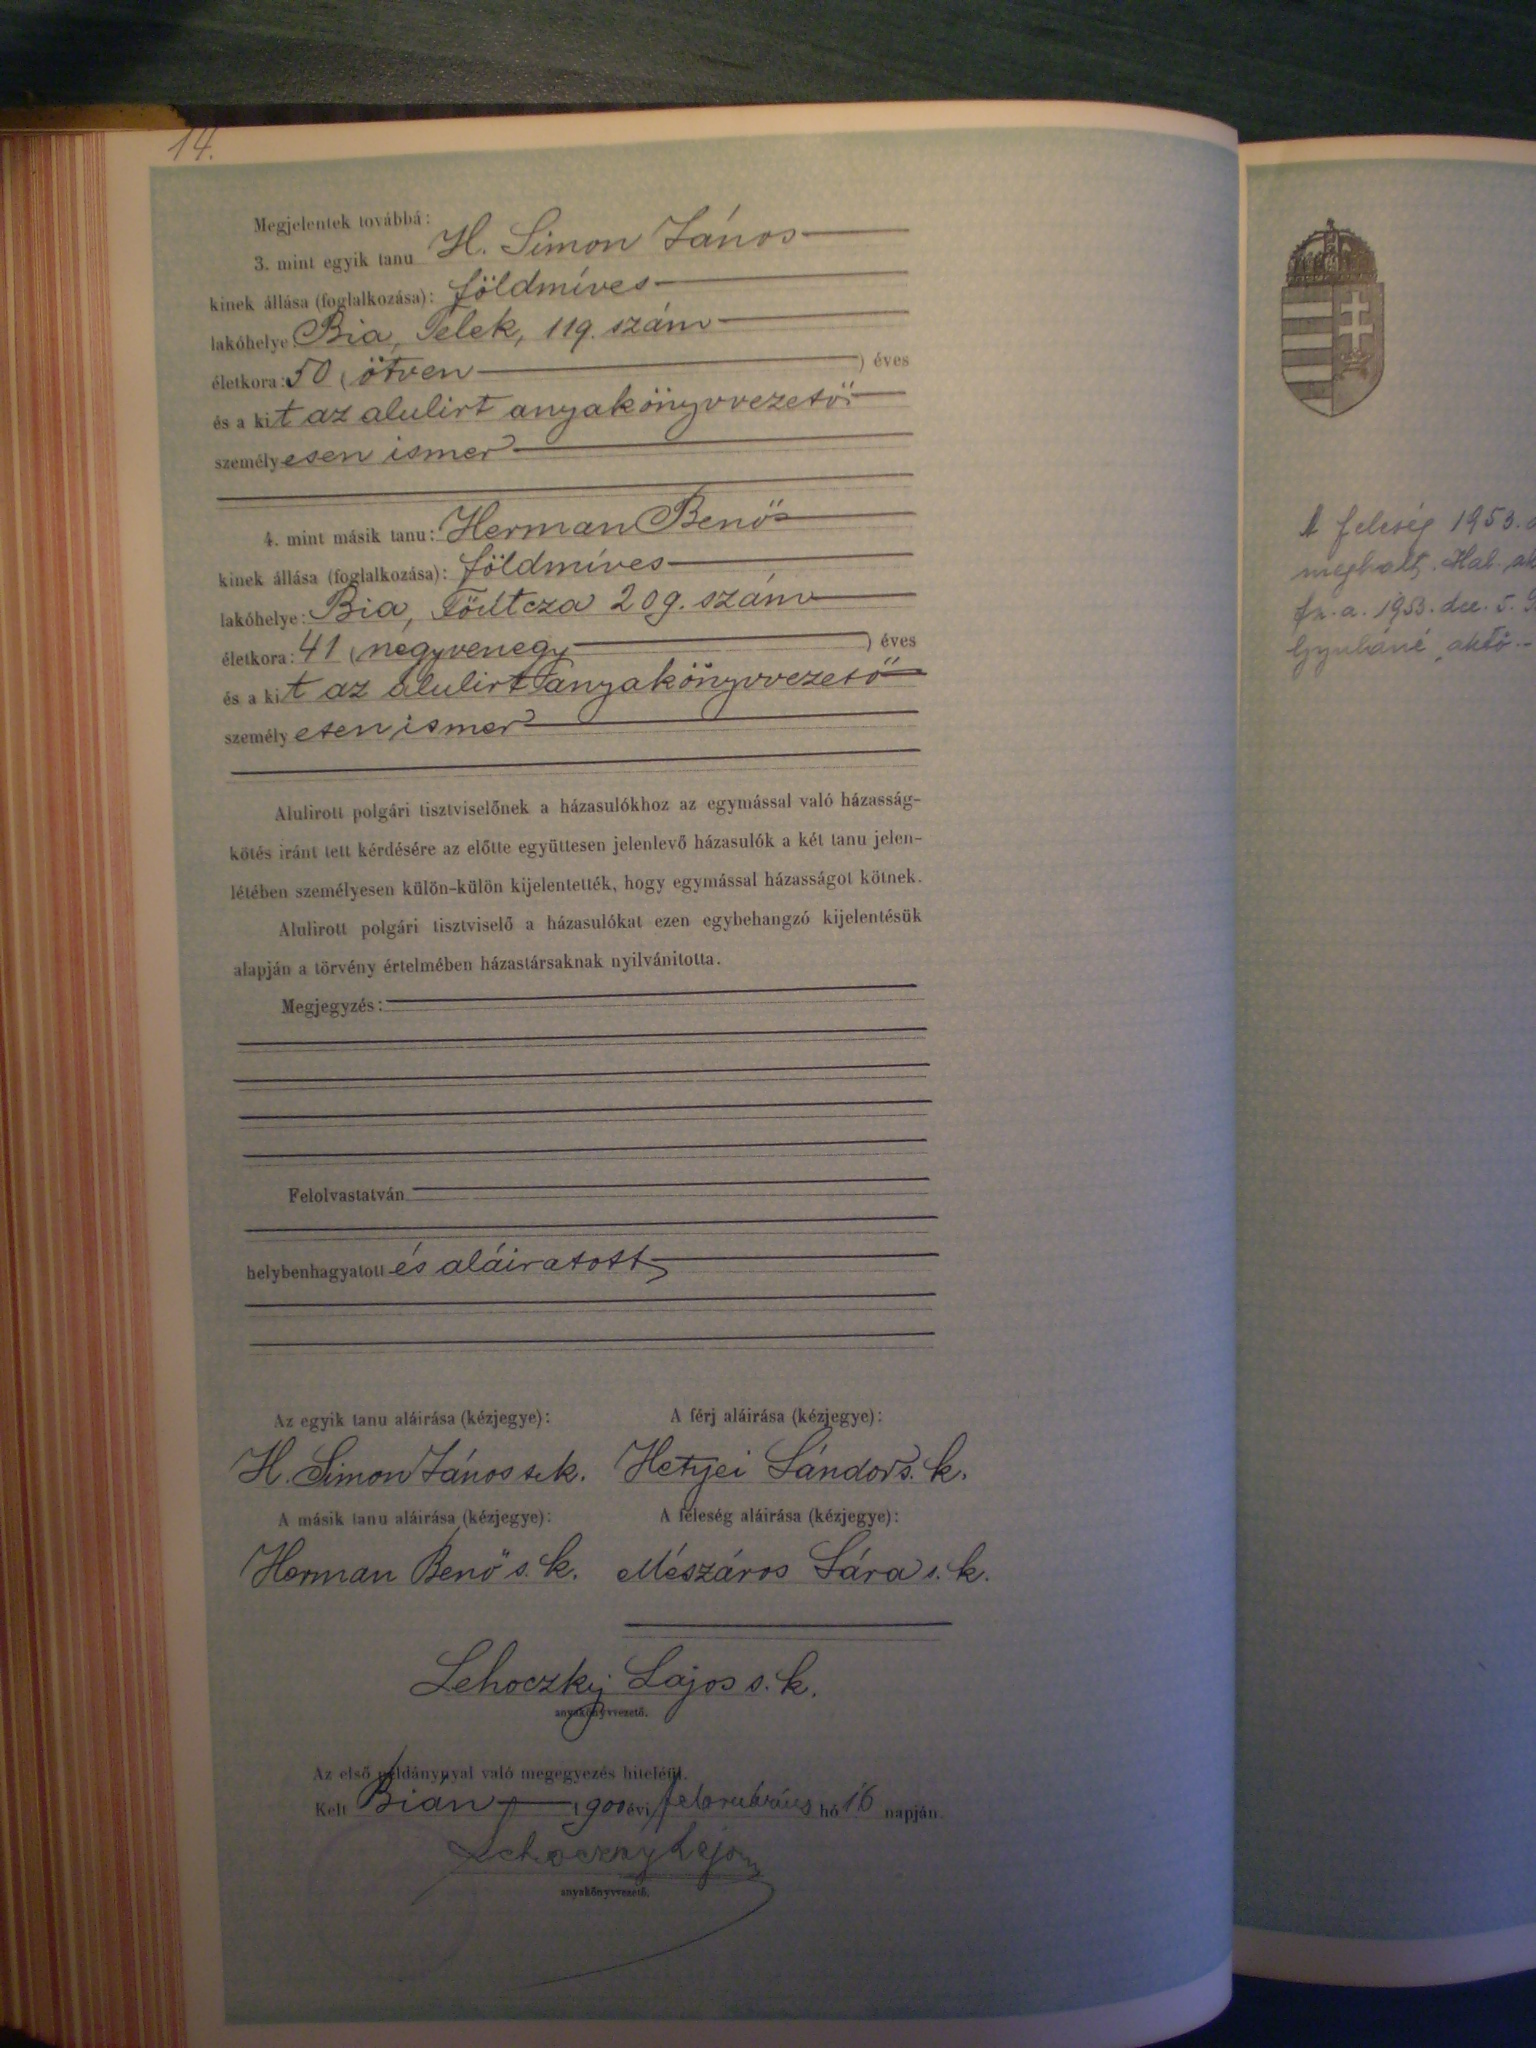 14.
Megjelentek továbbá:
3. mint egyik tanu H. Simon János
kinek állása (foglalkozása): földmíves
lakóhelye: Bia, Telek, 119. szám
életkora: 50 (ötven) éves
és a kit az alulirt anyakönyvvezető
személyesen ismer
4. mint másik tanu: Herman Benő
kinek állása (foglalkozása): földmíves
lakóhelye: Bia, Főútcza 209. szám
életkora: 41 (négyvenegy) éves
és a kit az alulirt anyakönyvvezető
személyesen ismer
Alulirott polgári tisztviselőnek a házasulókhoz az egymással való házasság-
kötés iránt tett kérdésére az előtte együttesen jelenlevő házasulók a két tanu jelen-
létében személyesen külön-külön kijelentették, hogy egymással házasságot kötnek.
Alulirott polgári tisztviselő a házasulókat ezen egybehangzó kijelentésük
alapján a törvény értelmében házastársaknak nyilvánitotta.
Megjegyzés:
Felolvastatván
helybenhagyatott és aláiratott
Az egyik tanu aláirása (kézjegye): A férj aláirása (kézjegye):
H. Simon János s. k. Hetyei Sándor s. k.
A másik tanu aláirása (kézjegye): A feleség aláirása (kézjegye):
Herman Benő s. k. Mészáros Sára s. k.
Lehoczky Lajos s. k.
anyakönyvvezető.
Az első példánynyal való megegyezés hiteléül.
Kelt Bián 1900 évi februárius hó 16 napján.
Lehoczky Lajos
anyakönyvvezető.
A feleség 1953.
meghalt. Hal. ak
1953. dec. 5.
Gyuláné